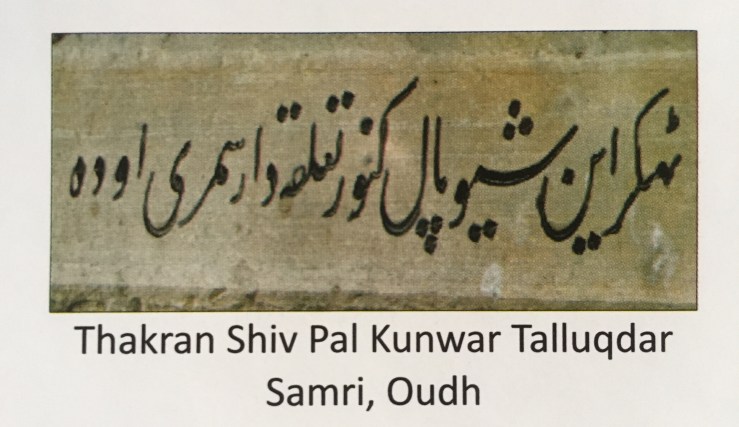 ٹھکراین شیوپال کنور تعلقہ دار سمری اودہ
Thakran Shiv Pal Kunwar Talluqdar
Samri, Oudh